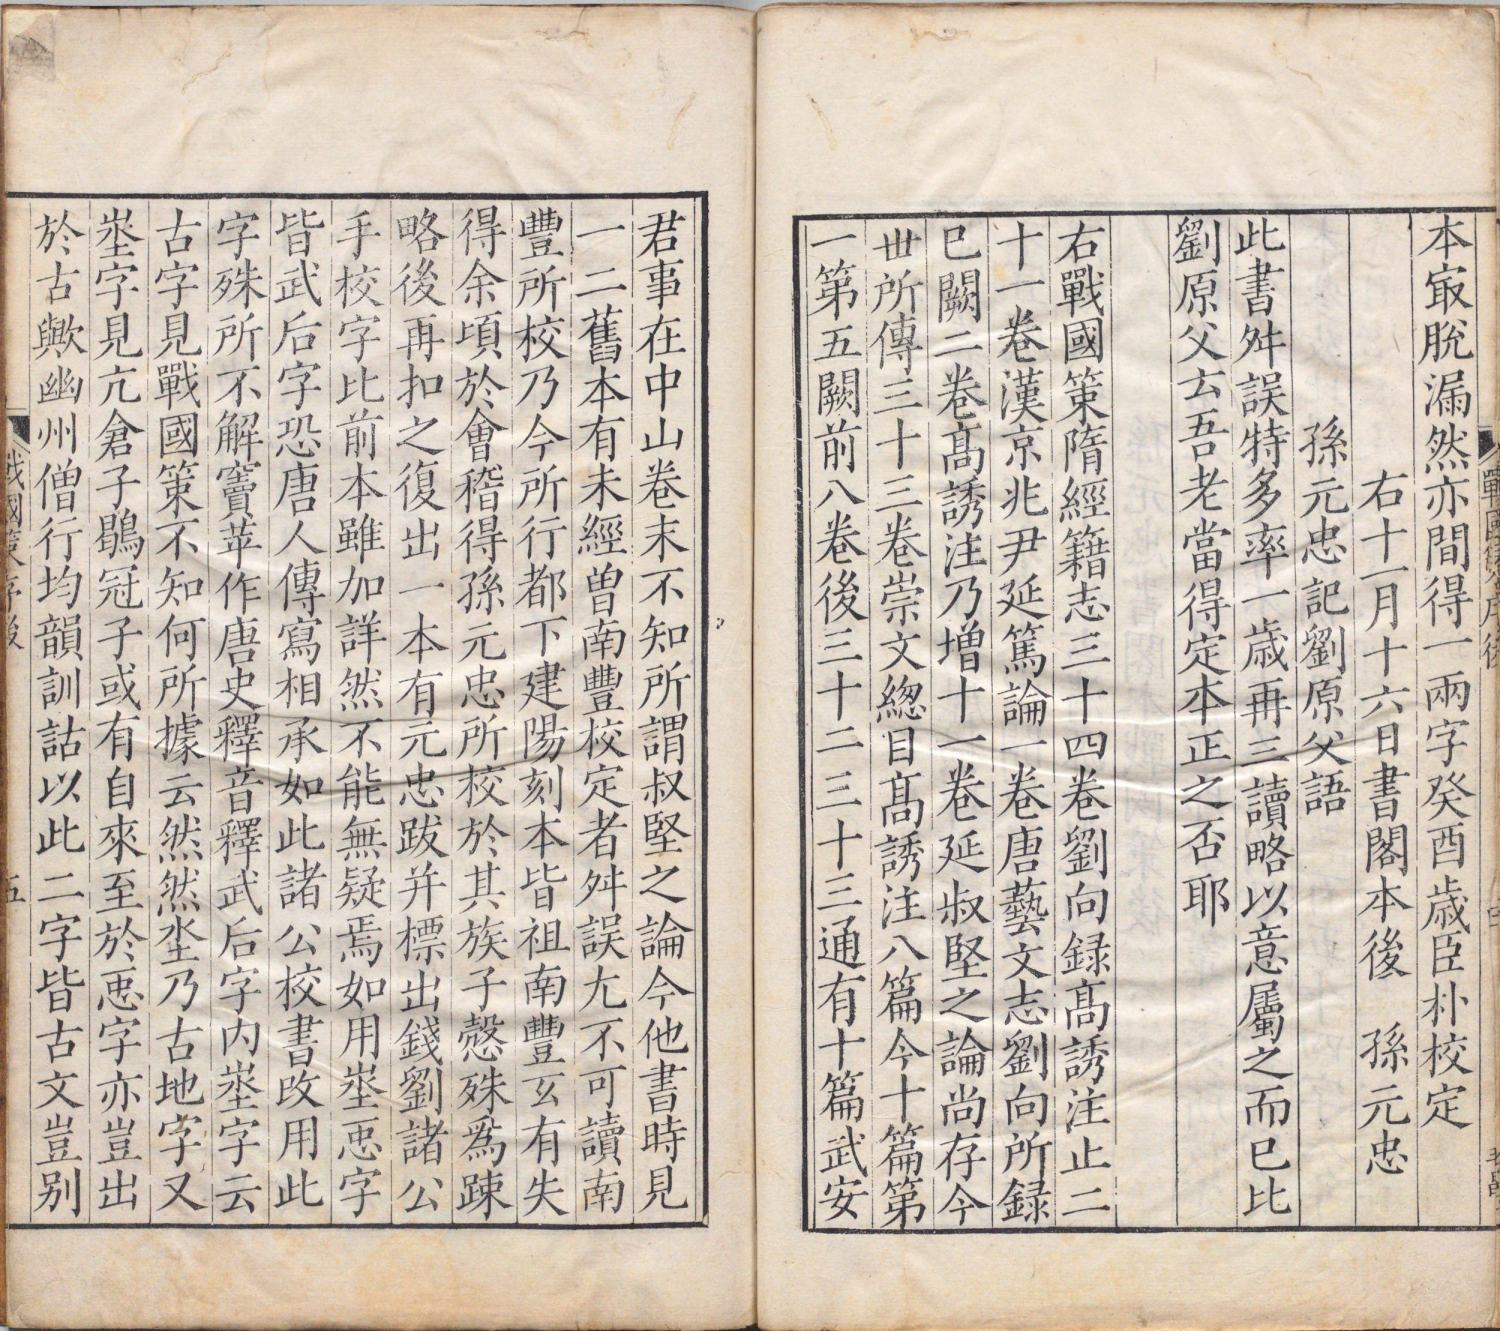 本㝡脫漏然亦間得一兩字癸酉歲臣朴校定
右十一月十六日書閣本後　孫元忠
孫元忠記劉原父語
此書舛誤特多率一歲再三讀略以意屬之而已比
劉原父云吾老當得定本正之否耶
右戰國策隋經籍志三十四卷劉向録髙誘注止二
十一卷漢京兆尹延篤論一卷唐藝文志劉向所録
已闕二卷髙誘注乃増十一卷延叔堅之論尚存今
丗所傳三十三卷崇文緫目髙誘注八篇今十篇第
一第五闕前八卷後三十二三十三通有十篇武安
君事在中山卷末不知所謂叔堅之論今他書時見
一二舊本有未經曽南豐校定者舛誤尤不可讀南
豐所校乃今所行都下建陽刻本皆祖南豐互有失
得余頃於會稽得孫元忠所校於其族子慤殊爲踈
略後再扣之復出一本有元忠跋并標出錢劉諸公
手校字比前本雖加詳然不能無疑焉如用埊恧字
皆武后字恐唐人傳寫相承如此諸公校書改用此
字殊所不解竇苹作唐史釋音釋武后字内埊字云
古字見戰國策不知何所據云然然埊乃古地字又
埊字見亢倉子鶡冠子或有自來至於恧字亦豈出
於古歟幽州僧行均韻訓詁以此二字皆古文豈别
戰國策序後
五